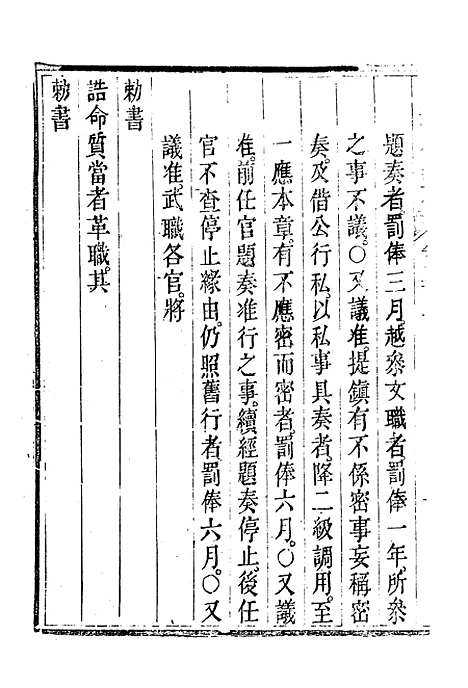 題奏者罰俸三月越參文職者罰俸一年所參
之事不議○又議准提鎮有不係密事妄稱密
奏及借公行私以私事具奏者降二級調用至
一應本章有不應密而密者罰俸六月○又議
准前任官題奏准行之事續經題奏停止後任
官不查停止緣由仍照舊行者罰俸六月○又
議准武職各官將
勅書
誥命質當者革職其
勅書